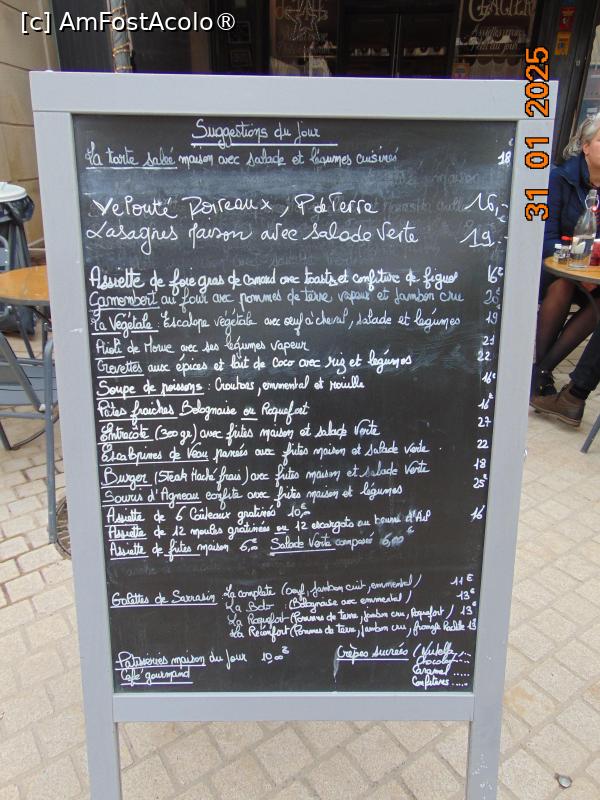 [c] AmFostAcolo®
GLACIER
31 01 2025
Suggestions du jour
La tarte salée maison avec salade et légumes cuisinés 18€
Velouté Poireaux, P de Terre 16,-
Lasagnes Maison avec salade Verte 19.-
Assiette de foie gras de canard avec toasts et confiture de figue 16€
Camembert au four avec pommes de terre vapeur et jambon cru 20€
La Végétale : Escalope végétale avec œuf à cheval, salade et légumes 19
Aïoli de Morue avec ses légumes vapeur 21
Crevettes aux épices et lait de coco avec riz et légumes 22
Soupe de poissons : Croutons, emmental et rouille 16€
Pâtes fraiches Bolognaise ou Roquefort 16€
Entrecôte (300 gr) avec frites maison et salade verte 27
Escalopines de Veau panées avec frites maison et salade verte 22
Burger (Steak Haché frais) avec frites maison et salade verte 18
Souris d'Agneau confite avec frites maison et légumes 25€
Assiette de 6 Couteaux gratinés 10,00
Assiette de 12 moules gratinées ou 12 escargots au beurre d'Ail 16
Assiette de frites maison 6,00 Salade verte 6,00€
Galettes de Sarrasin La complète (oeuf, jambon cuit, emmental) 11€
La Bolo (Bolognaise avec emmental) 13€
La Roquefort (Pommes de terre, jambon cru, Roquefort) 13€
La Reconfort (Pommes de terre, jambon cru, fromage Raclette 13
Patisseries maison du jour 10.00€
Crêpes sucrées (Nutella
Chocolat
Café gourmand
Caramel .....
Confitures .....